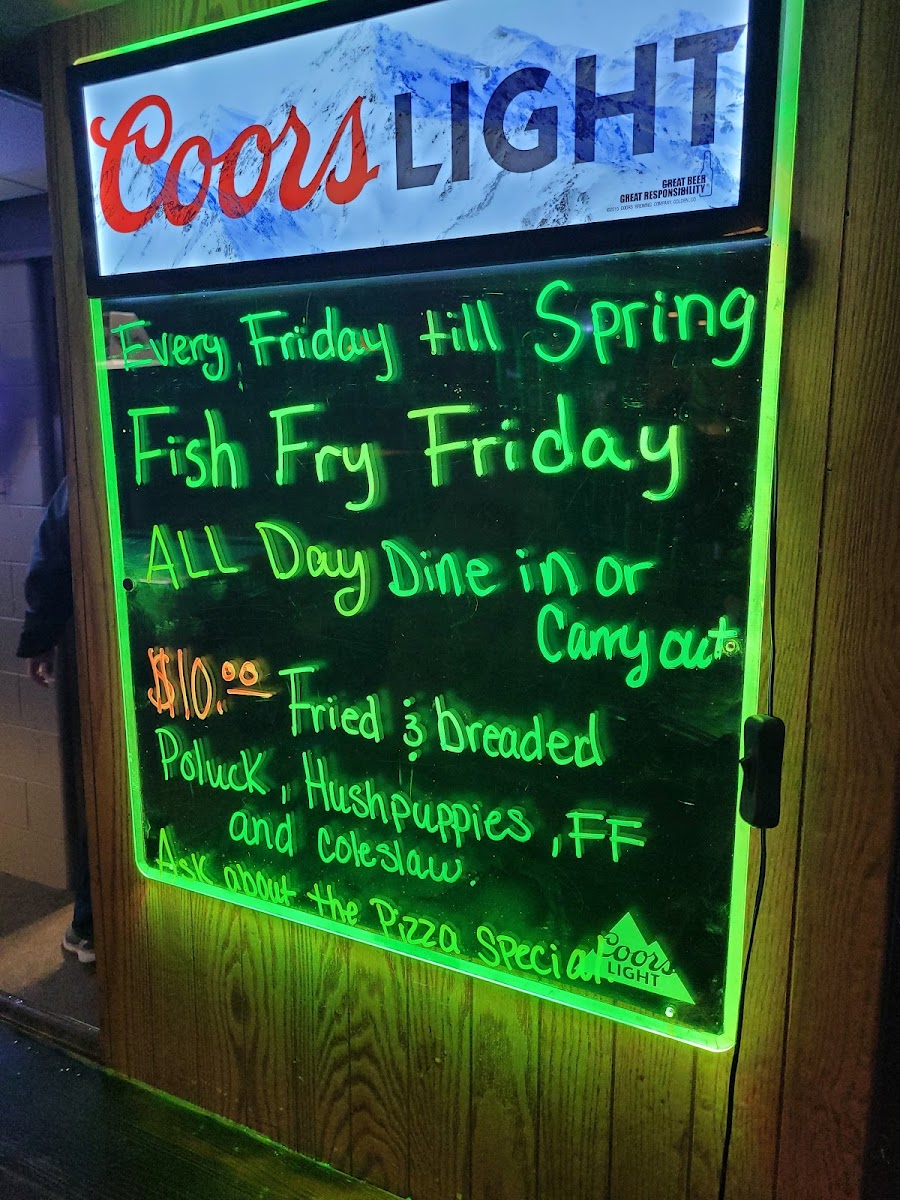 Coors LIGHT
GREAT BEER
GREAT RESPONSIBILITY
©2015 COORS BREWING COMPANY, GOLDEN, CO
Every Friday till Spring
Fish Fry Friday
ALL Day Dine in or
Carry out
$10.00 Fried & breaded
Poluck, Hushpuppies, FF
and coleslaw.
Ask about the Pizza Special
Coors
LIGHT